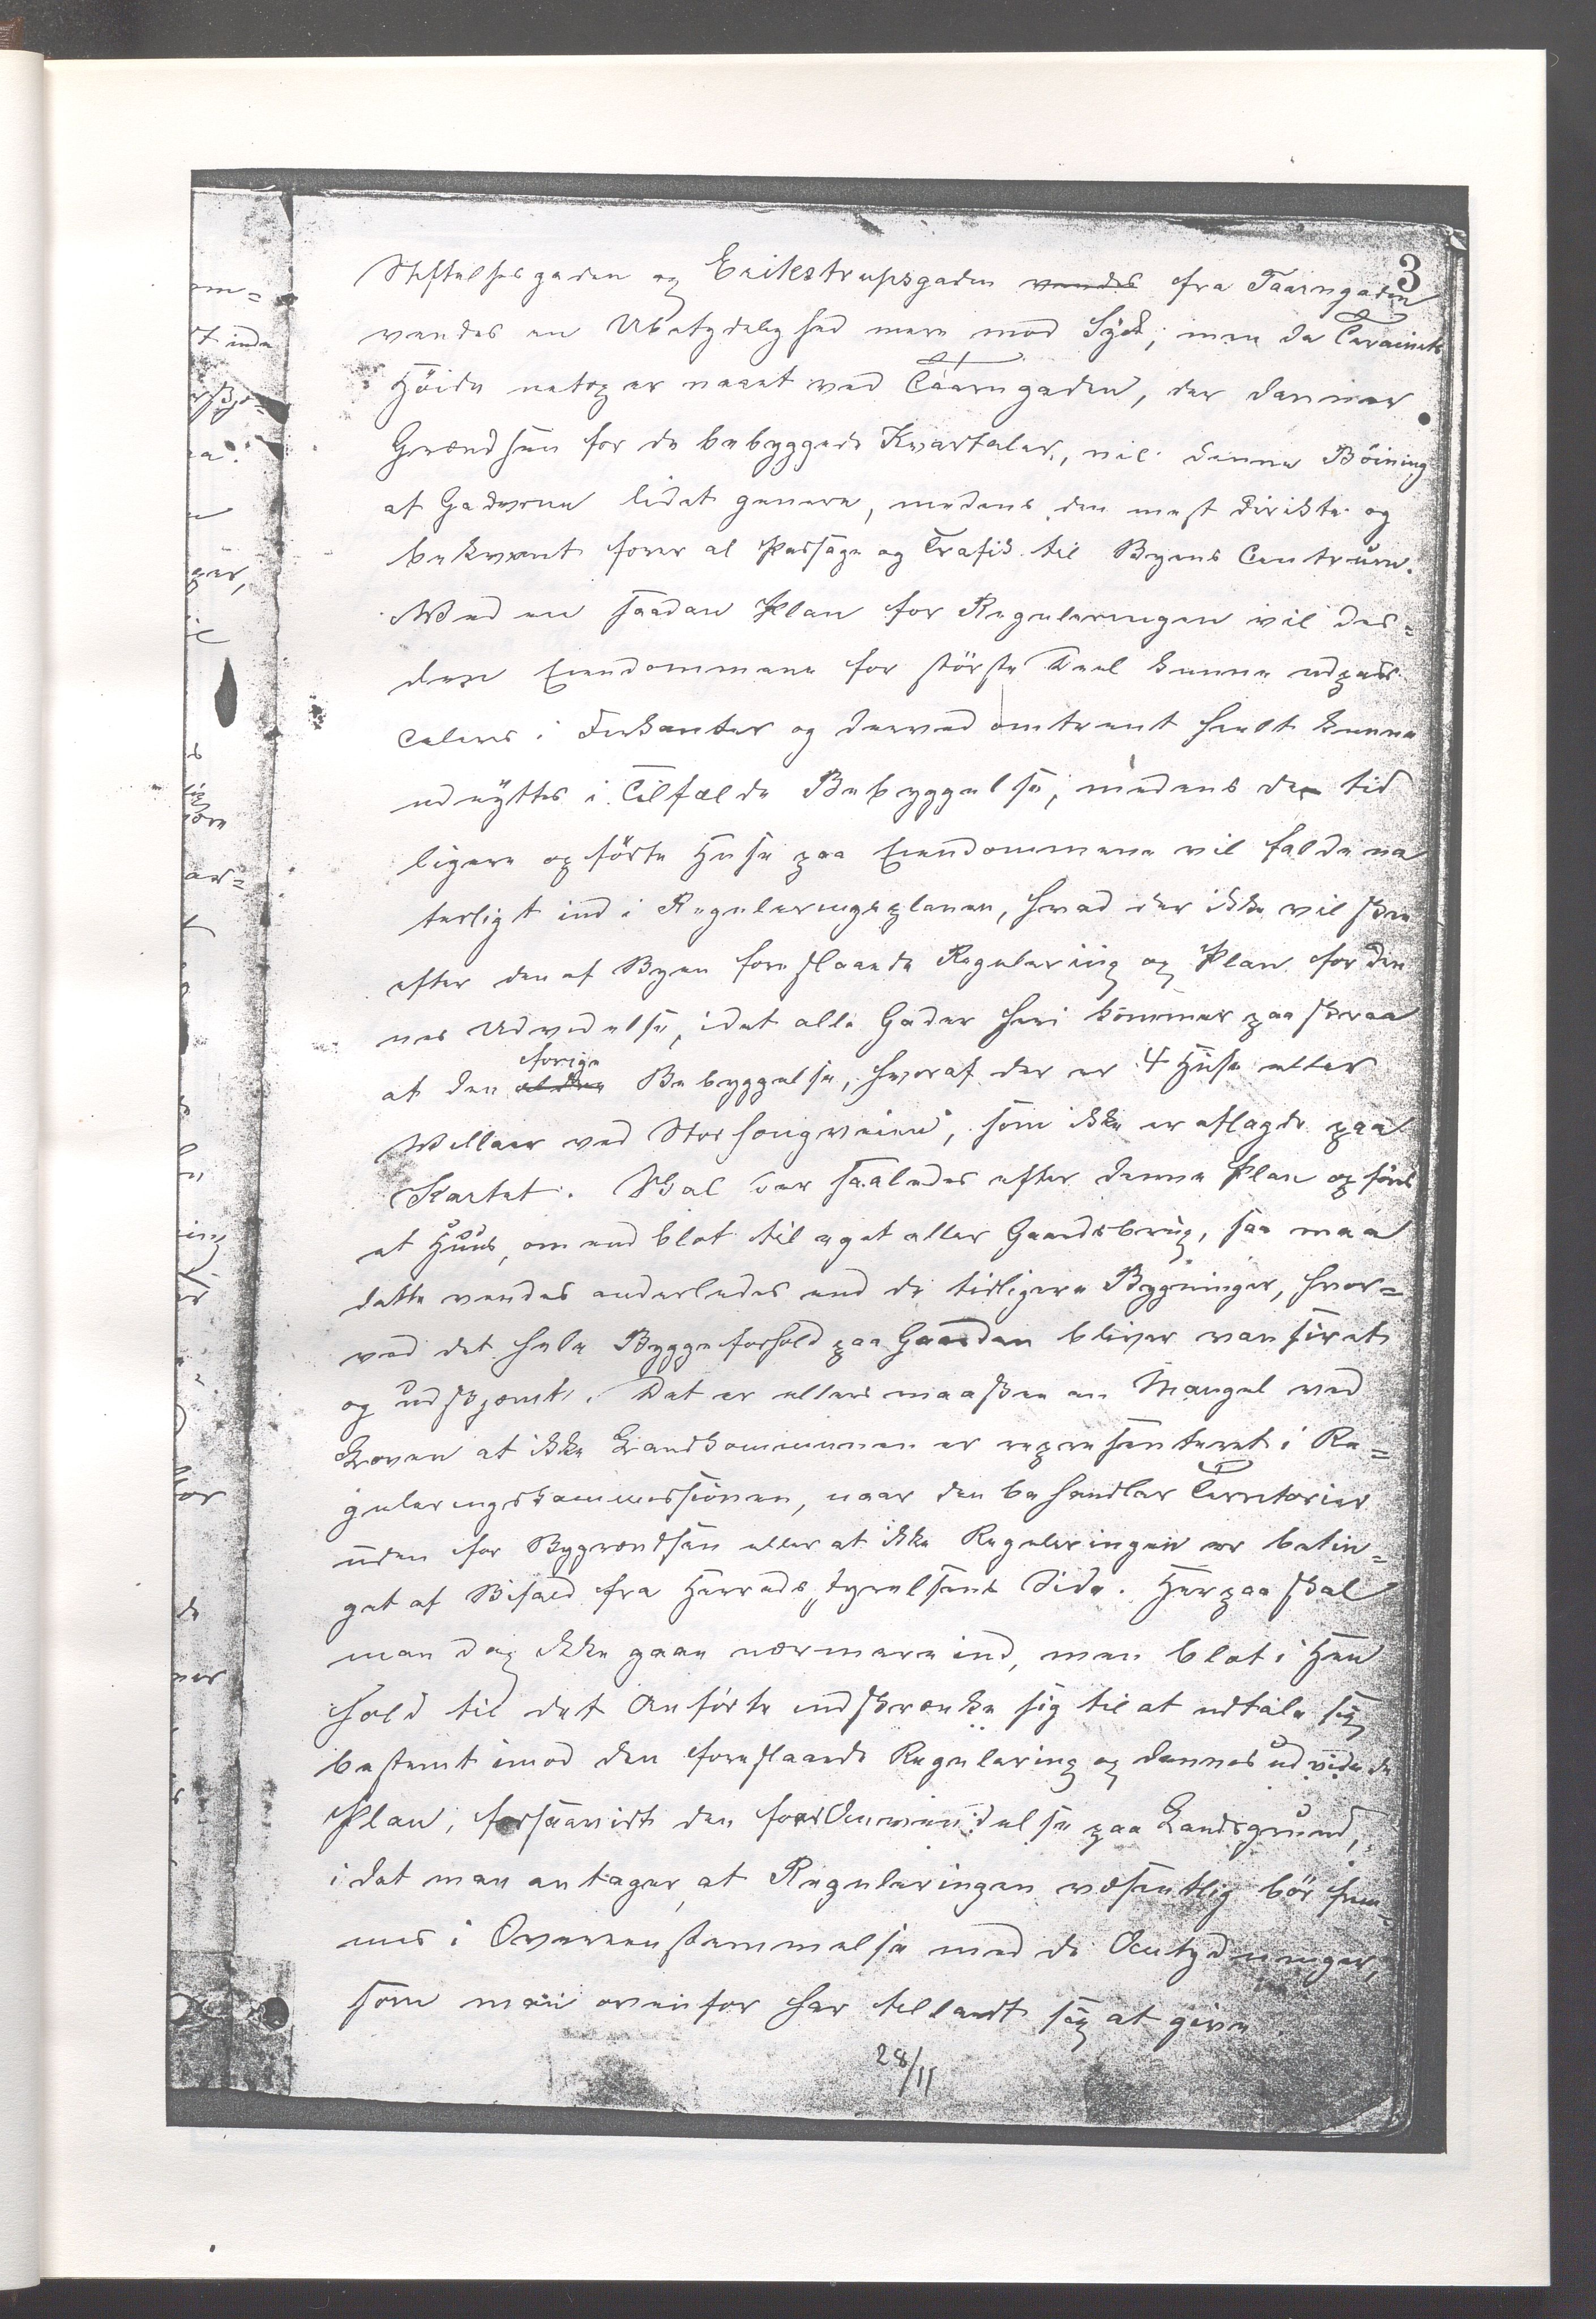 3
Stiftelsesgaden og Erikstrupsgaden vendes fra Taarngaden
vendes en Ubetydelighed mere mod Syd; men da Terainets
Höide netop er naaet ved Taarngaden, der danner
Grændsen for de bebyggede Kvartaler, vil denne Böining
af Gaderne lidet genere, medens den mest direkte og
bekvemt fører al Passage og Trafik til Byens Centrum.
Med en saadan Plan for Reguleringen vil des=
uden Eiendommene for störste Deel kunne udpar
celeres i Firkanter og derved omtrent heelt kunne
udnyttes i Tilfælde Bebyggelse, medens de tid
ligere opförte Huse paa Eiendommene vil falde na
turligt ind i Reguleringsplanen, hvad der ikke vil skee
efter den af Byen foreslaaede Regulering og Plan for den
nes Udvidelse, idet alle Gader heri kommer paa skraa
forige
af den ældre Bebyggelse, hvoraf der er 4 Huse eller
Willaer ved Storhougveien, som ikke er aflagde paa
Kartet. Skal der saaledes efter denne Plan opföres
et Huus, om end blot til eget eller Gaardsbrug, saa maa
dette vendes anderledes end de tidligere Bygninger, hvor=
ved det hele Byggeforhold paa Gaarden bliver vansiret
og udskjæmt. Det er ellers maaskee en Mangel ved
Loven at ikke Landkommunen er repræsenteret i Re=
guleringskommissionen, naar den behandler Territorier
uden for Bygrændsen eller at ikke Reguleringen er betin=
get af Bifald fra Herredsstyrelsens Side. Herpaa skal
man dog ikke gaae nærmere ind, men blot i Hen
hold til det Anförte indskrænke sig til at udtale sig
bestemt imod den foreslaaede Regulering og dennes udvidede
Plan, forsaavidt den faar Anvendelse paa Landsgrund,
idet man antager, at Reguleringen væsentlig bör frem=
mes i Overeenstemmelse med de Antydninger,
som man ovenfor har tilladt sig at give.
28/11